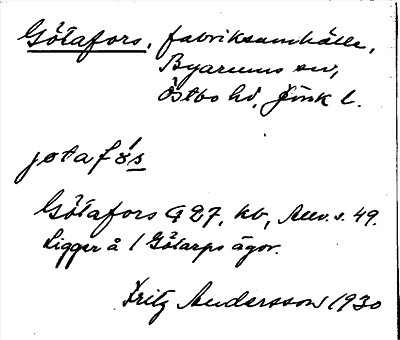 Götafors, fabrikssamhälle,
Byarums sn,
Östbo hd, Jönk l.
jøtafós
Götafors G 27, kb, Anv. s. 49.
Ligger å 1 Götarps ägor.
Fritz Andersson 1930